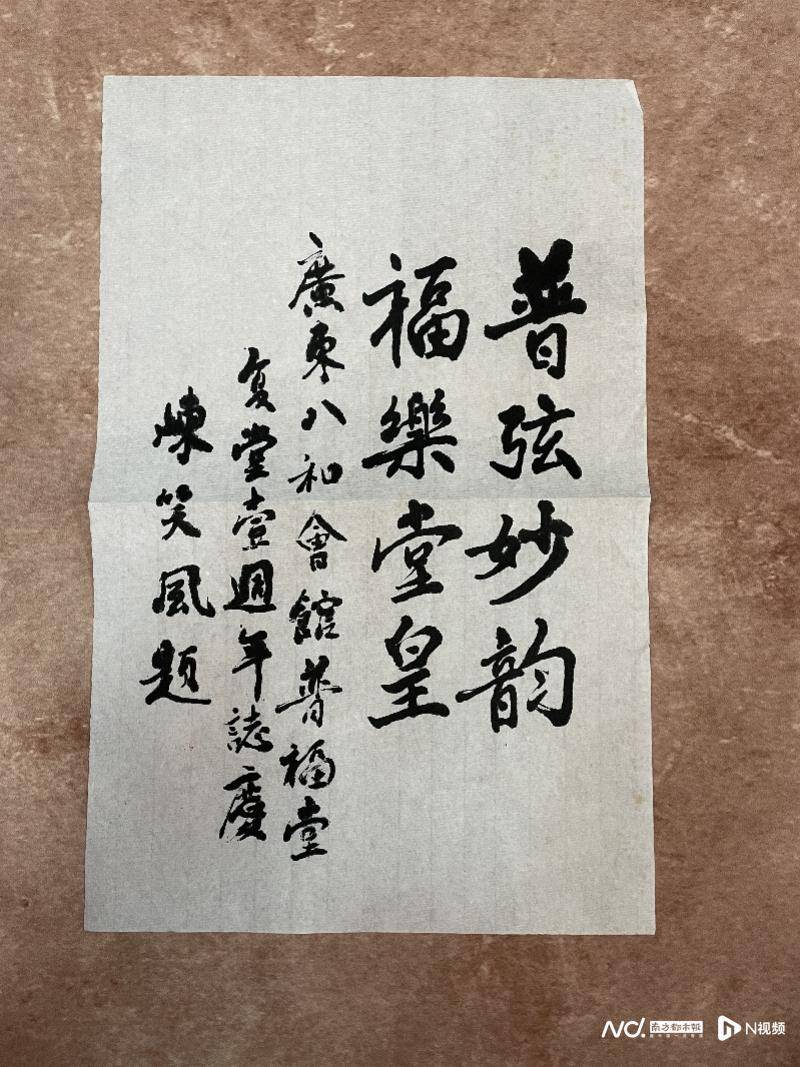 普弦妙韵
福樂堂皇
廣東八和會館普福堂
复堂壹週年誌慶
陳笑風題
南方都市报
N视频